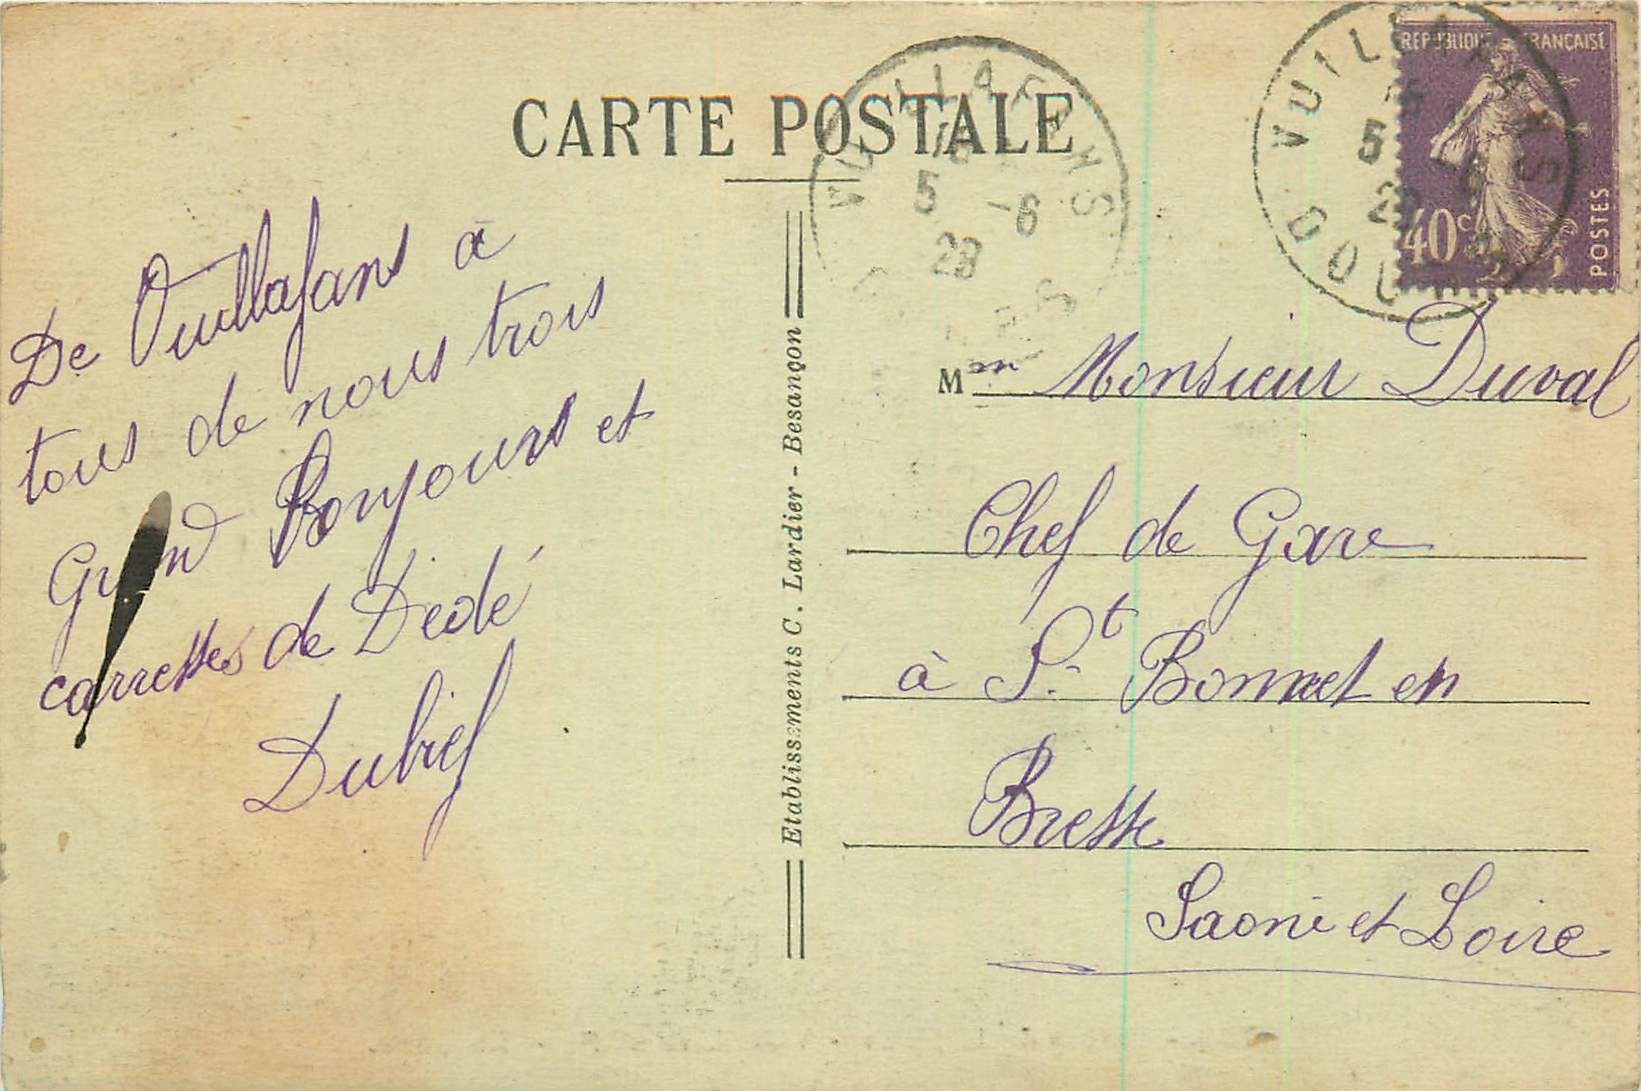 CARTE POSTALE
VUILLAFANS
16
5 -6
28
DOUBS
VUILLAFANS
5 -6
DOUBS
REPUBLIQUE FRANÇAISE
40c
POSTES
De Vuillafans à
tous de nous trois
Grand Bonjours et
carresses de Dédé
Dubief
Etablissements C. Lardier - Besançon
M Monsieur Duval
Chef de Gare
à St Bonnet en
Bresse
Saone et Loire